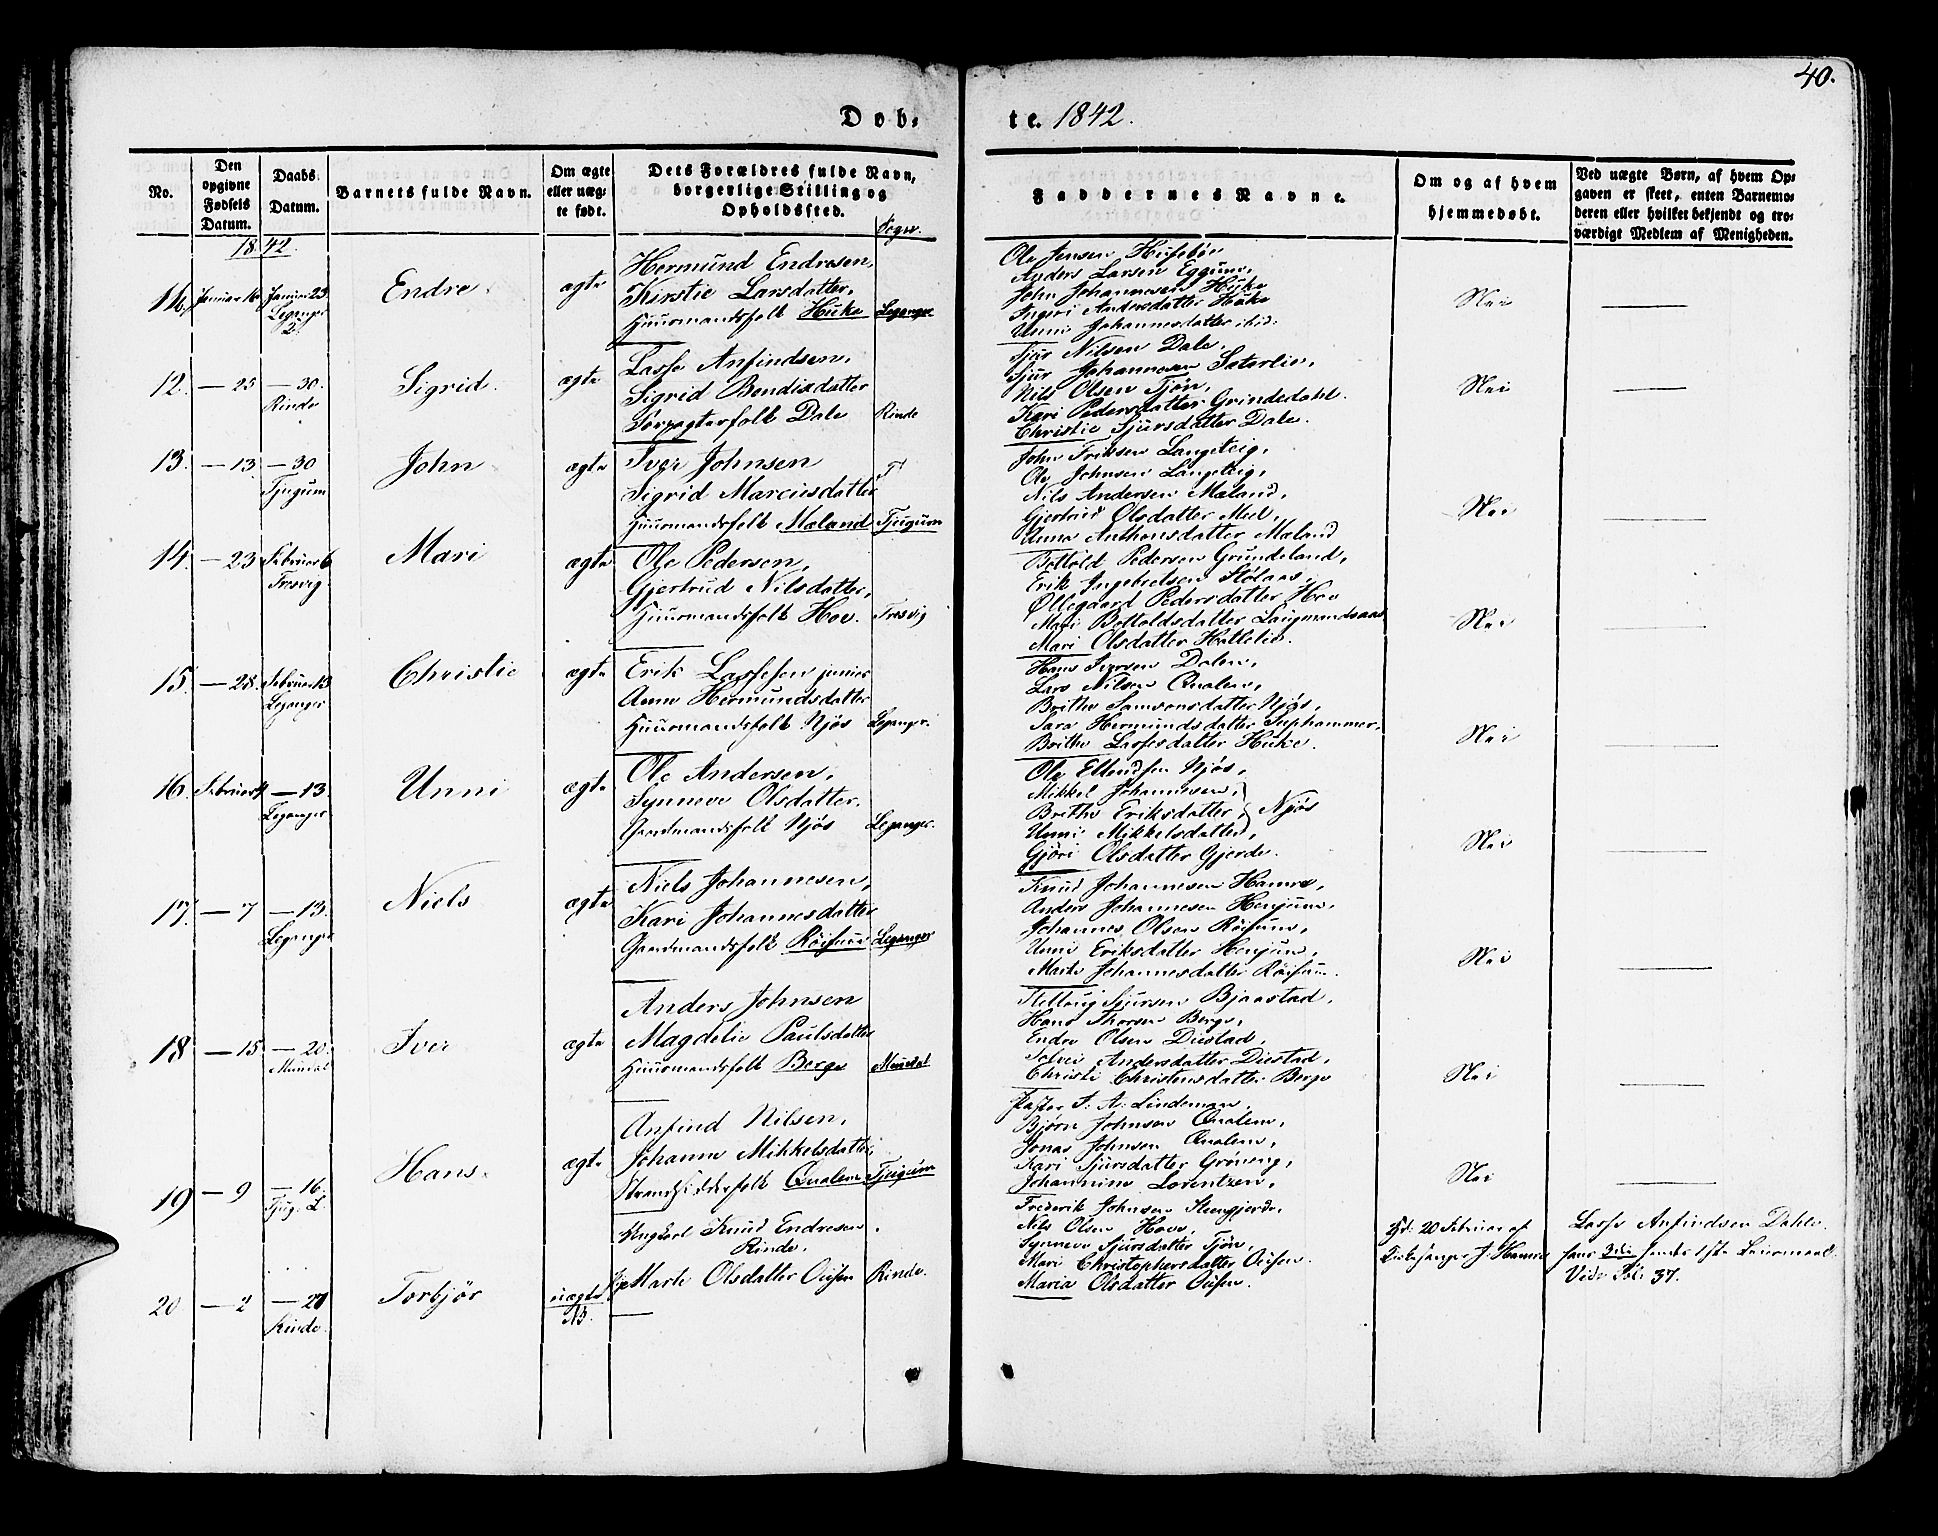 40.
Døb- te. 1842.
No.
Den opgivne Fødsels Datum.
Daabs Datum.
Barnets fulde Navn.
Om ægte eller uægte født.
Dets Forældres fulde Navn, borgerlige Stilling og Opholdssted.
Sogn.
Faddernes Navne.
Om og af hvem hjemmedøbt.
Ved uægte Børn, af hvem Opgaven er skeet, enten Barnemoderen eller hvilket bekjendt og troværdigt Medlem af Menigheden.
1842.
11. Januar 16 Januar 23. Leganger
Endre
ægte
Hermund Endresen,
Kirstie Larsdatter,
Huusmandsfolk Huke Leganger
Ole Jensen Husebør
Anders Larsen Eggum,
John Johannesen Huke
Ingeri Andersdatter Huke
Unni Johannesdatter ibid:
Nei
12. — 25 — 30. Rinde
Sigrid.
ægte
Lasse Anfindsen,
Sigrid Bendixdatter
Forpagterfolk Dale Rinde
Sjur Nilsen Dale,
Sjur Johannesen Saterlie,
Nils Olsen Tjøn,
Kari Pedersdatter Grindedahl.
Christie Sjursdatter Dale.
Nei
13. — 13 — 30 Tjugum
John
ægte
Iver Johnsen
Sigrid Marcusdatter
Huusmandsfolk Mæland Tjugum
John Eriksen Langeteig,
Ole Johnsen Langeteig,
Nils Andersen Mæland,
Gjertrud Olsdatter Mel,
Anna Anthonsdatter Mæland
Nei
14. — 23 Februar 6 Fresvig.
Mari
ægte
Ole Pedersen,
Gjertrud Nilsdatter,
Huusmandsfolk Hov. Fresvig
Bottold Pedersen Grundeland,
Erik Ingebretsen Stølaas,
Øllegaard Pedersdatter Hov
Mari Bottoldsdatter Langmandsaas
Mari Olsdatter Hattelie.
Nei
15. — 28. Februar 13 Leganger
Christie
ægte
Erik Lassesen junior
Anne Hermundsdatter
Huusmandsfolk Njøs Leganger.
Hans Iversen Dalen,
Lars Nilsen Qualen,
Brithe Samsonsdatter Njøs,
Sara Hermundsdatter Suphammer,
Brithe Lassesdatter Huke.
Nei
16. Februar 4 — 13. Leganger
Unni
ægte
Ole Andersen,
Synneve Olsdatter.
Gaardmandsfolk Njøs Leganger.
Ole Ellendsen Njøs,
Mikkel Johannesen,
Brithe Eriksdatter, Njøs
Unni Mikkelsdatter,
Gjøri Olsdatter Gjerde.
Nei
17. — 7 — 13. Leganger
Niels
ægte
Niels Johannesen,
Kari Johannesdatter
Gaardmandsfolk Röisum Leganger
Knud Johannesen Hamre,
Anders Johannesen Henjum,
Johannes Olsen Röisum,
Unni Eriksdatter Henjum,
Marte Johannesdatter Röisum.
Nei
18 — 15 — 20. Mundal
Iver
ægte
Anders Johnsen
Magdelie Paulsdatter
Huusmandsfolk Berge Mundal
Sjursen Bjaastad,
Hans Thorsen Berge,
Endre Olsen Distad,
Andersdatter Distad,
Christi Christensdatter Berge
Nei
19 — 9 — 16. Tjug. L.
Hans.
ægte
Anfind Nilsen,
Johanne Mikkelsdatter,
Strandsidderfolk Qualen Tjugum
Pastor Lindeman,
Bjørn Johnsen Qualen,
Jonas Johnsen Qualen,
Kari Sjursdatter Grøneng,
Johannine Lorentzen,
Nei
20 — 2 — 27 Rinde.
Torbjör
uægte NB.
Ungkarl Knud Endresen
Rinde.
Pige Marte Olsdatter Ousen Rinde.
Frederik Johnsen Steengjerde,
Nils Olsen Hove,
Synneve Sjursdatter Tjøn,
Mari Christophersdatter Ousen.
Maria Olsdatter Ousen.
Hd. 20 Februar af
Kirkesanger J. Hamre
Lasse Anfindsen Dahle.
hans 3die hendes 1ste Leiermaal.
Vide Fol: 37.